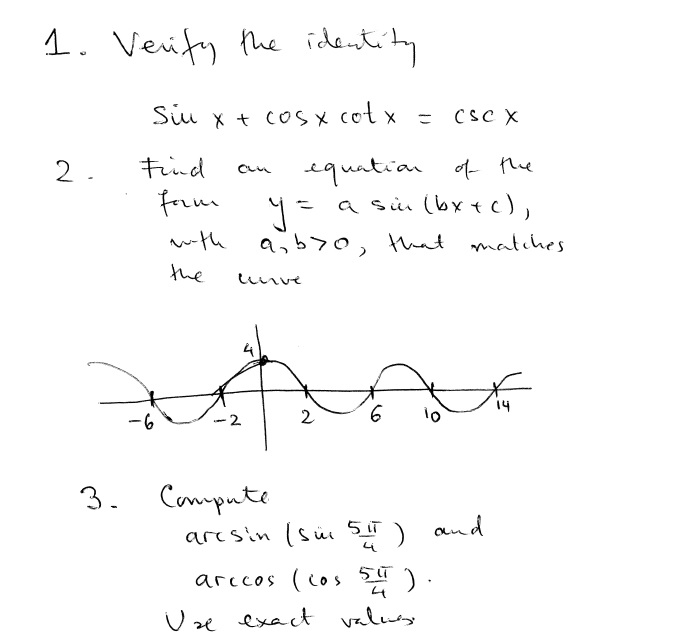 1. Verify the identity
sin x + cos x cot x = csc x
2. Find an equation of the
form y = a sin (bx + c),
with a, b > 0, that matches
the curve
4
-6 -2 2 6 10 14
3. Compute
arcsin (sin 5π/4) and
arccos (cos 5π/4).
Use exact values